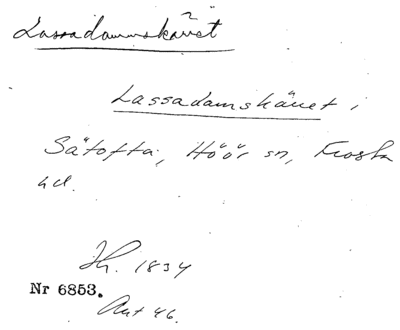 Lassadammskäuet
Lassadamskäuet i
Sätofta, Höör sn, Frosta
hd.
Jh. 1834
Nr 6853.
Ant 46.